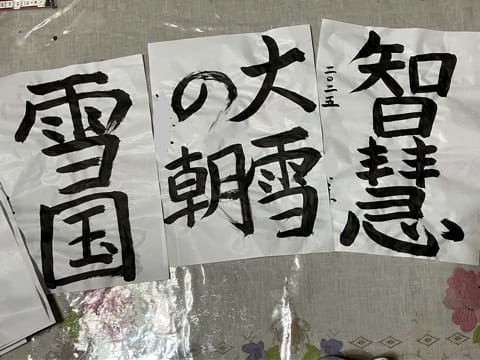 智慧
二〇二五
大雪
の朝
雪国